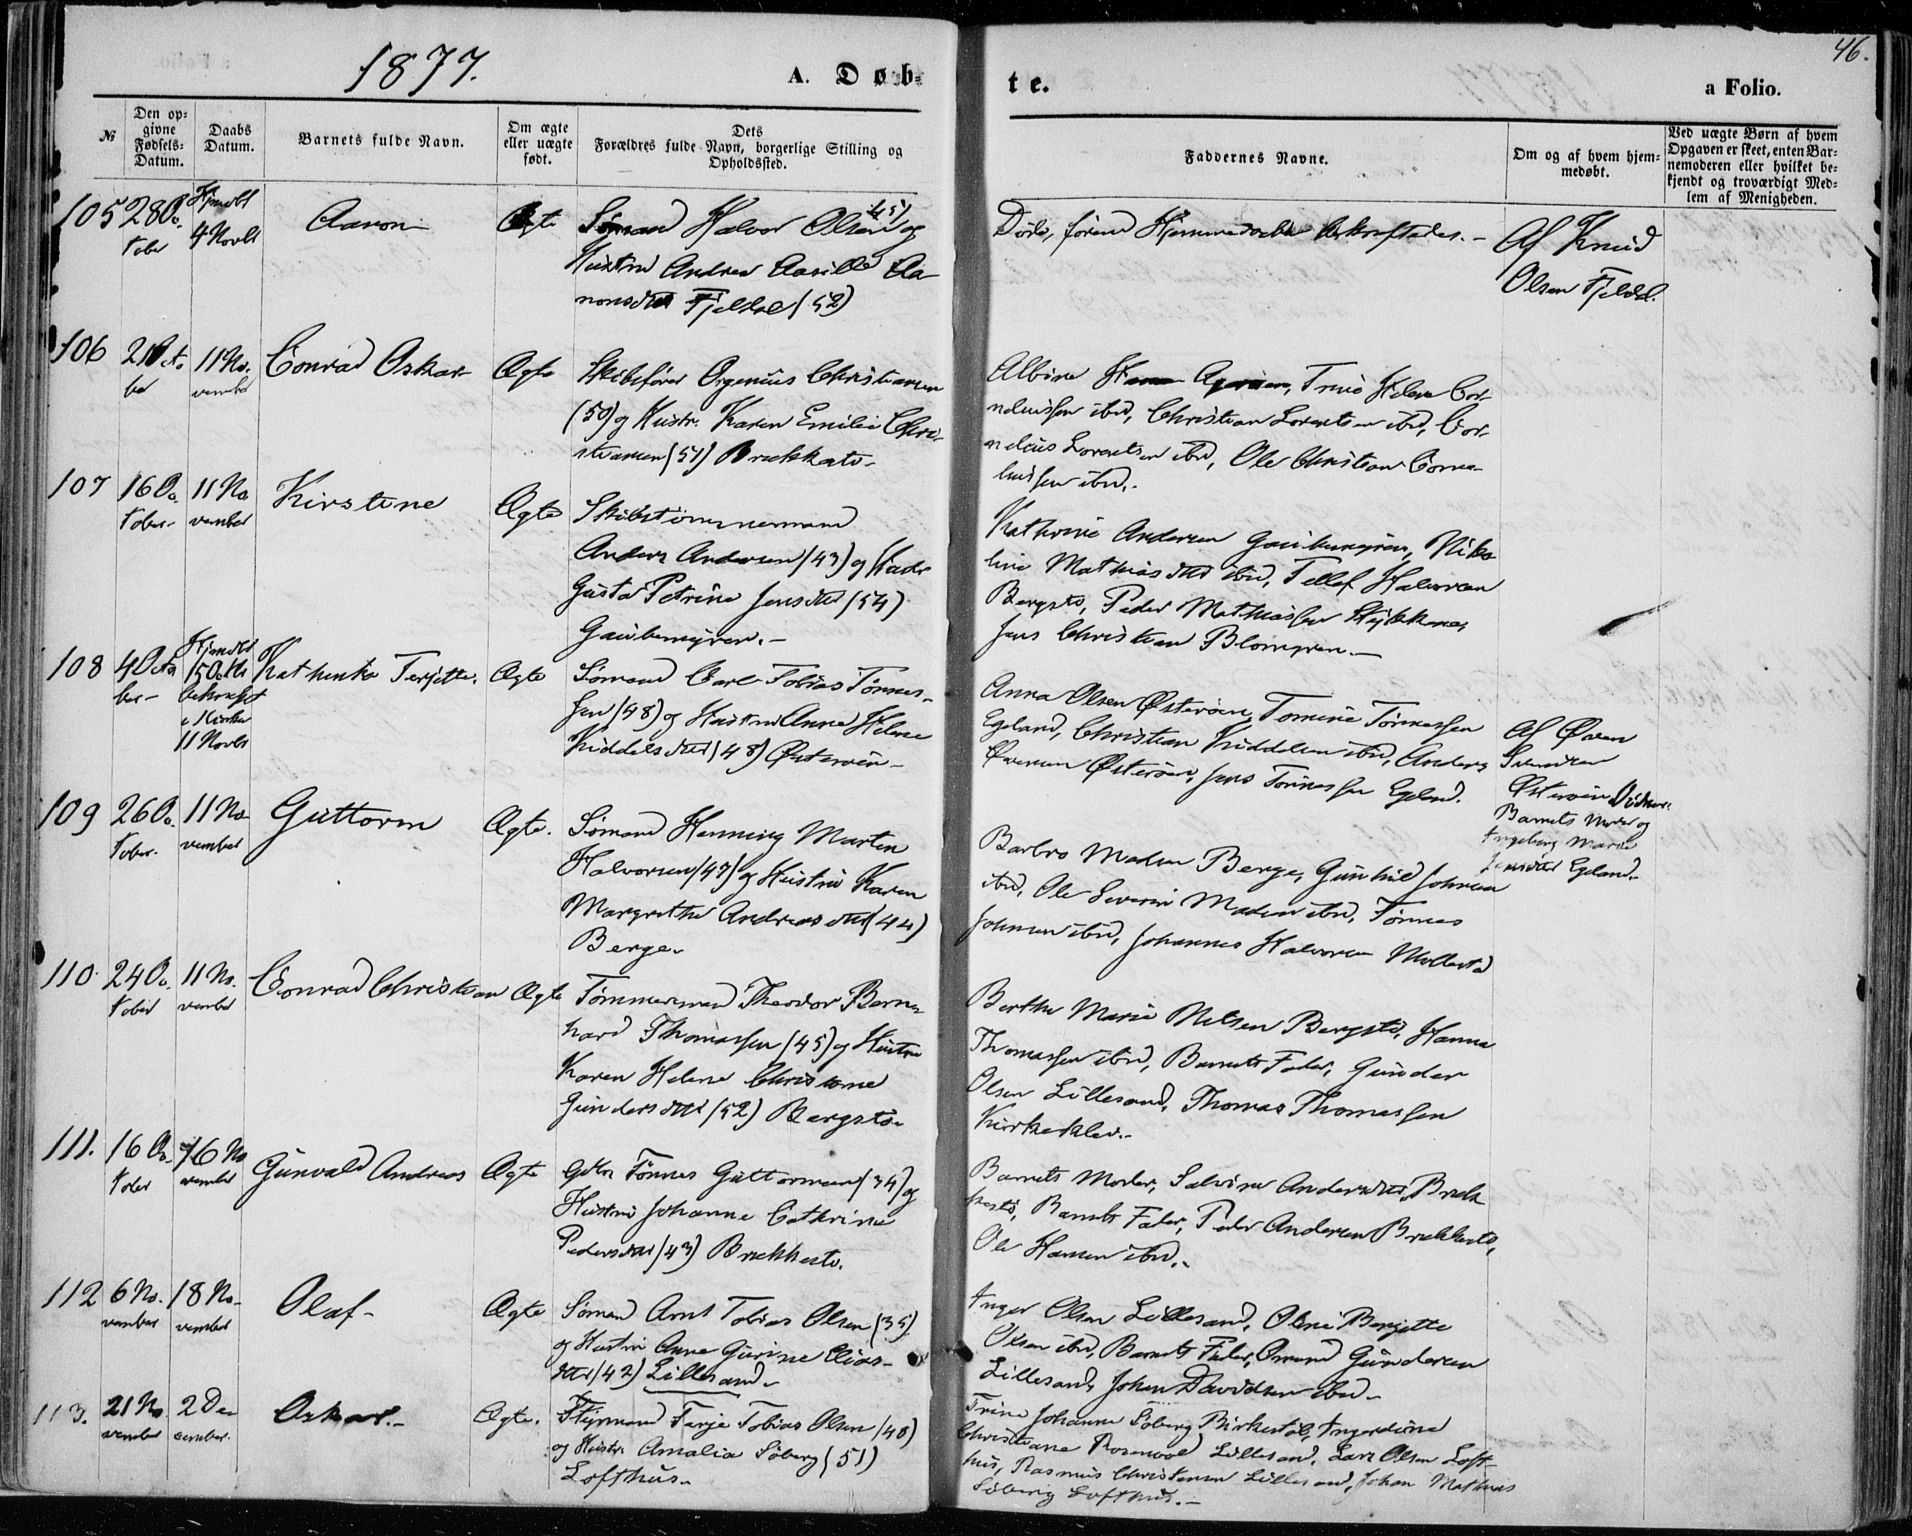 1877.
A. Døb-
te.
a Folio.
46.
№
Den op-
givne
Fødsels-
Datum.
Daabs
Datum.
Barnets fulde Navn.
Om ægte
eller uægte
født.
Dets
Forældres fulde Navn, borgerlige Stilling og
Opholdssted.
Faddernes Navne.
Om og af hvem hjem-
medøbt.
Ved uægte Børn af hvem
Opgaven er skeet, enten Bar-
nemoderen eller hvilket be-
kjendt og troværdigt Med-
lem af Menigheden.
105 28 Oc-
tober
Hjmdbt
4 Novbr
Aanon
Ægte
Sømand Halvor Olsen (45) og
Hustru Andrea Aasille Aa-
nonsdtter Fjeldal (52)
Døde, førend Hjemmedaaben bekræftedes.-
Af Knud
Olsen Fjeldal.
106 21 Octo-
ber
11 No-
vember
Conrad Oskar
Ægte
Skibsfører Orgenius Christiansen
(50) og Hustr. Karen Emilie Chri-
stiansen (51) Brekkestø-
Albine Trine Helene Cor-
neliussen ibid, Christian Lorentsen ibid, Cor-
nelius Lorentsen ibid, Ole Christian Corne-
liussen ibid.-
107 16 Oc-
tober-
11 No-
vember
Kirstine
Ægte
Skibstømmermand
Anders Andersen (43) og Hustr
Gusta Petrine Jensdtter (54)
Gaubemyren.-
Kathrine Andersen Gaubemyren, Niko-
line Mathiasdtter ibid, Tellef Halvorsen
Bergstø, Peder Mathiassen
Jens Christian Blomgren.-
108 4 Octo-
ber-
Hjmdbt
15 Octbr
bekræft
i Kirken
11 Novbr
Kathinka Terjette.
Ægte
Sømand Carl Tobias Tønnes-
sen (48) og Hustru Anne Helene
Kiddelsdtter (48) Østerøen-
Anna Olsen Østerøen, Tomine Tønnessen
Egeland, Christian Kiddelsen ibid, Anders
Evensen Østerøen, Jens Tønnessen Egeland.
Af Even
Svendsen
Østerøen Vidner:
Barnets Moder og
Ingeborg Marie
Jensdtter Egeland.
109 26 Oc-
tober.
11 No-
vember
Guttorm
Ægte.
Sømand Henning Marten
Halvorsen (47) og Hustru Karen
Margrethe Andreasdtter (44)
Berge.
Barbro Madsen Berge, Gunhild Johnsen
ibid, Ole Severin Madsen ibid, Tønnes
Johnsen ibid, Johannes Halvorsen Mollestad
110 24 Oc-
tober
11 No-
vember
Conrad Christian
Ægte
Tømmermand Theodor Bern-
hard Thomassen (45) og Hustru
Karen Helene Christine
Gundersdtter (52) Bergstø.
Berthe Marie Nilsen Bergstø, Hanna
Thomassen ibid, Barnets Fader, Gunder
Olsen Lillesand, Thomas Thomassen
Kirkeklev.-
111. 16 Oc-
tober
16 No
vember
Gunvald Andreas
Ægte
Gdbr Tønnes Guttormsen (34) og
Hustru Johanne Cathrine
Pedersdtter (43) Brekkestø.
Barnets Moder, Salvine Andersdtter Brek-
kestø, Barnets Fader, Peder Andersen Brekkestø,
Ole Hansen ibid.-
112 6 No-
vember
18 No-
vember
Olaf-
Ægte
Sømand Arnt Tobias Olsen (35)
og Hustru Anne Gurine Elias-
dtter (42) Lillesand-
Inger Olsen Lillesand, Oline Bergitte
Olsen ibid, Barnets Fader, Omund Gundersen
Lillesand, Johan Davidsen ibid-
113. 21 No
vember
2 De-
cember.
Oskar.-
Ægte.
Styrmand Terje Tobias Olsen (48)
og Hustr. Amalia Söberg (51)
Lofthus.
Trine Johanne Söberg Birkedal, Ingerdine
Christiane Rosenvold Lillesand, Lars Olsen Loft-
hus, Rasmus Christensen Lillesand, Johan Mathias
Söberg Lofthus.-